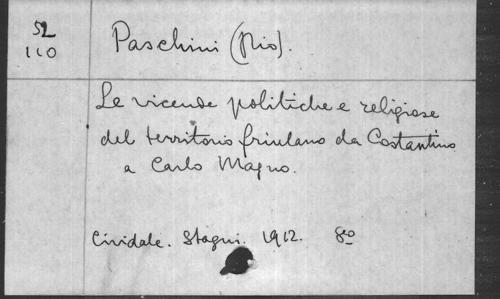 52
110
Paschini (Pio).
Le vicende politiche e religiose
del territorio friulano da Costantino
a Carlo Magno.
Cividale. Stagni. 1912. 8vo